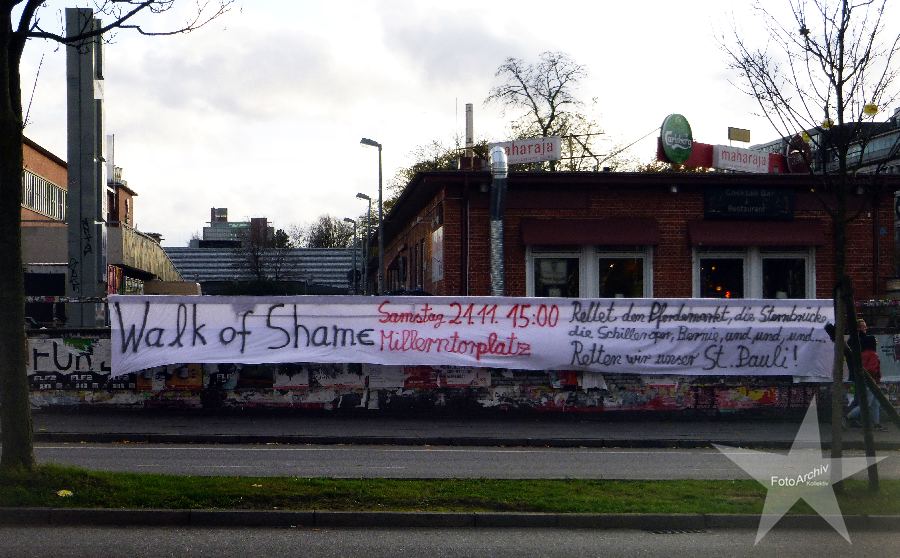 Carlsberg
maharaja
maharaja
Cocktail Bar
Restaurant
Walk of Shame
Samstag 21.11. 15:00
Millerntorplatz
Rettet den Pferdemarkt, die Sternbrücke,
die Schilleroper, Bernie, und, und, und...
Retten wir unser St. Pauli!
run
FotoArchiv
Kollektiv